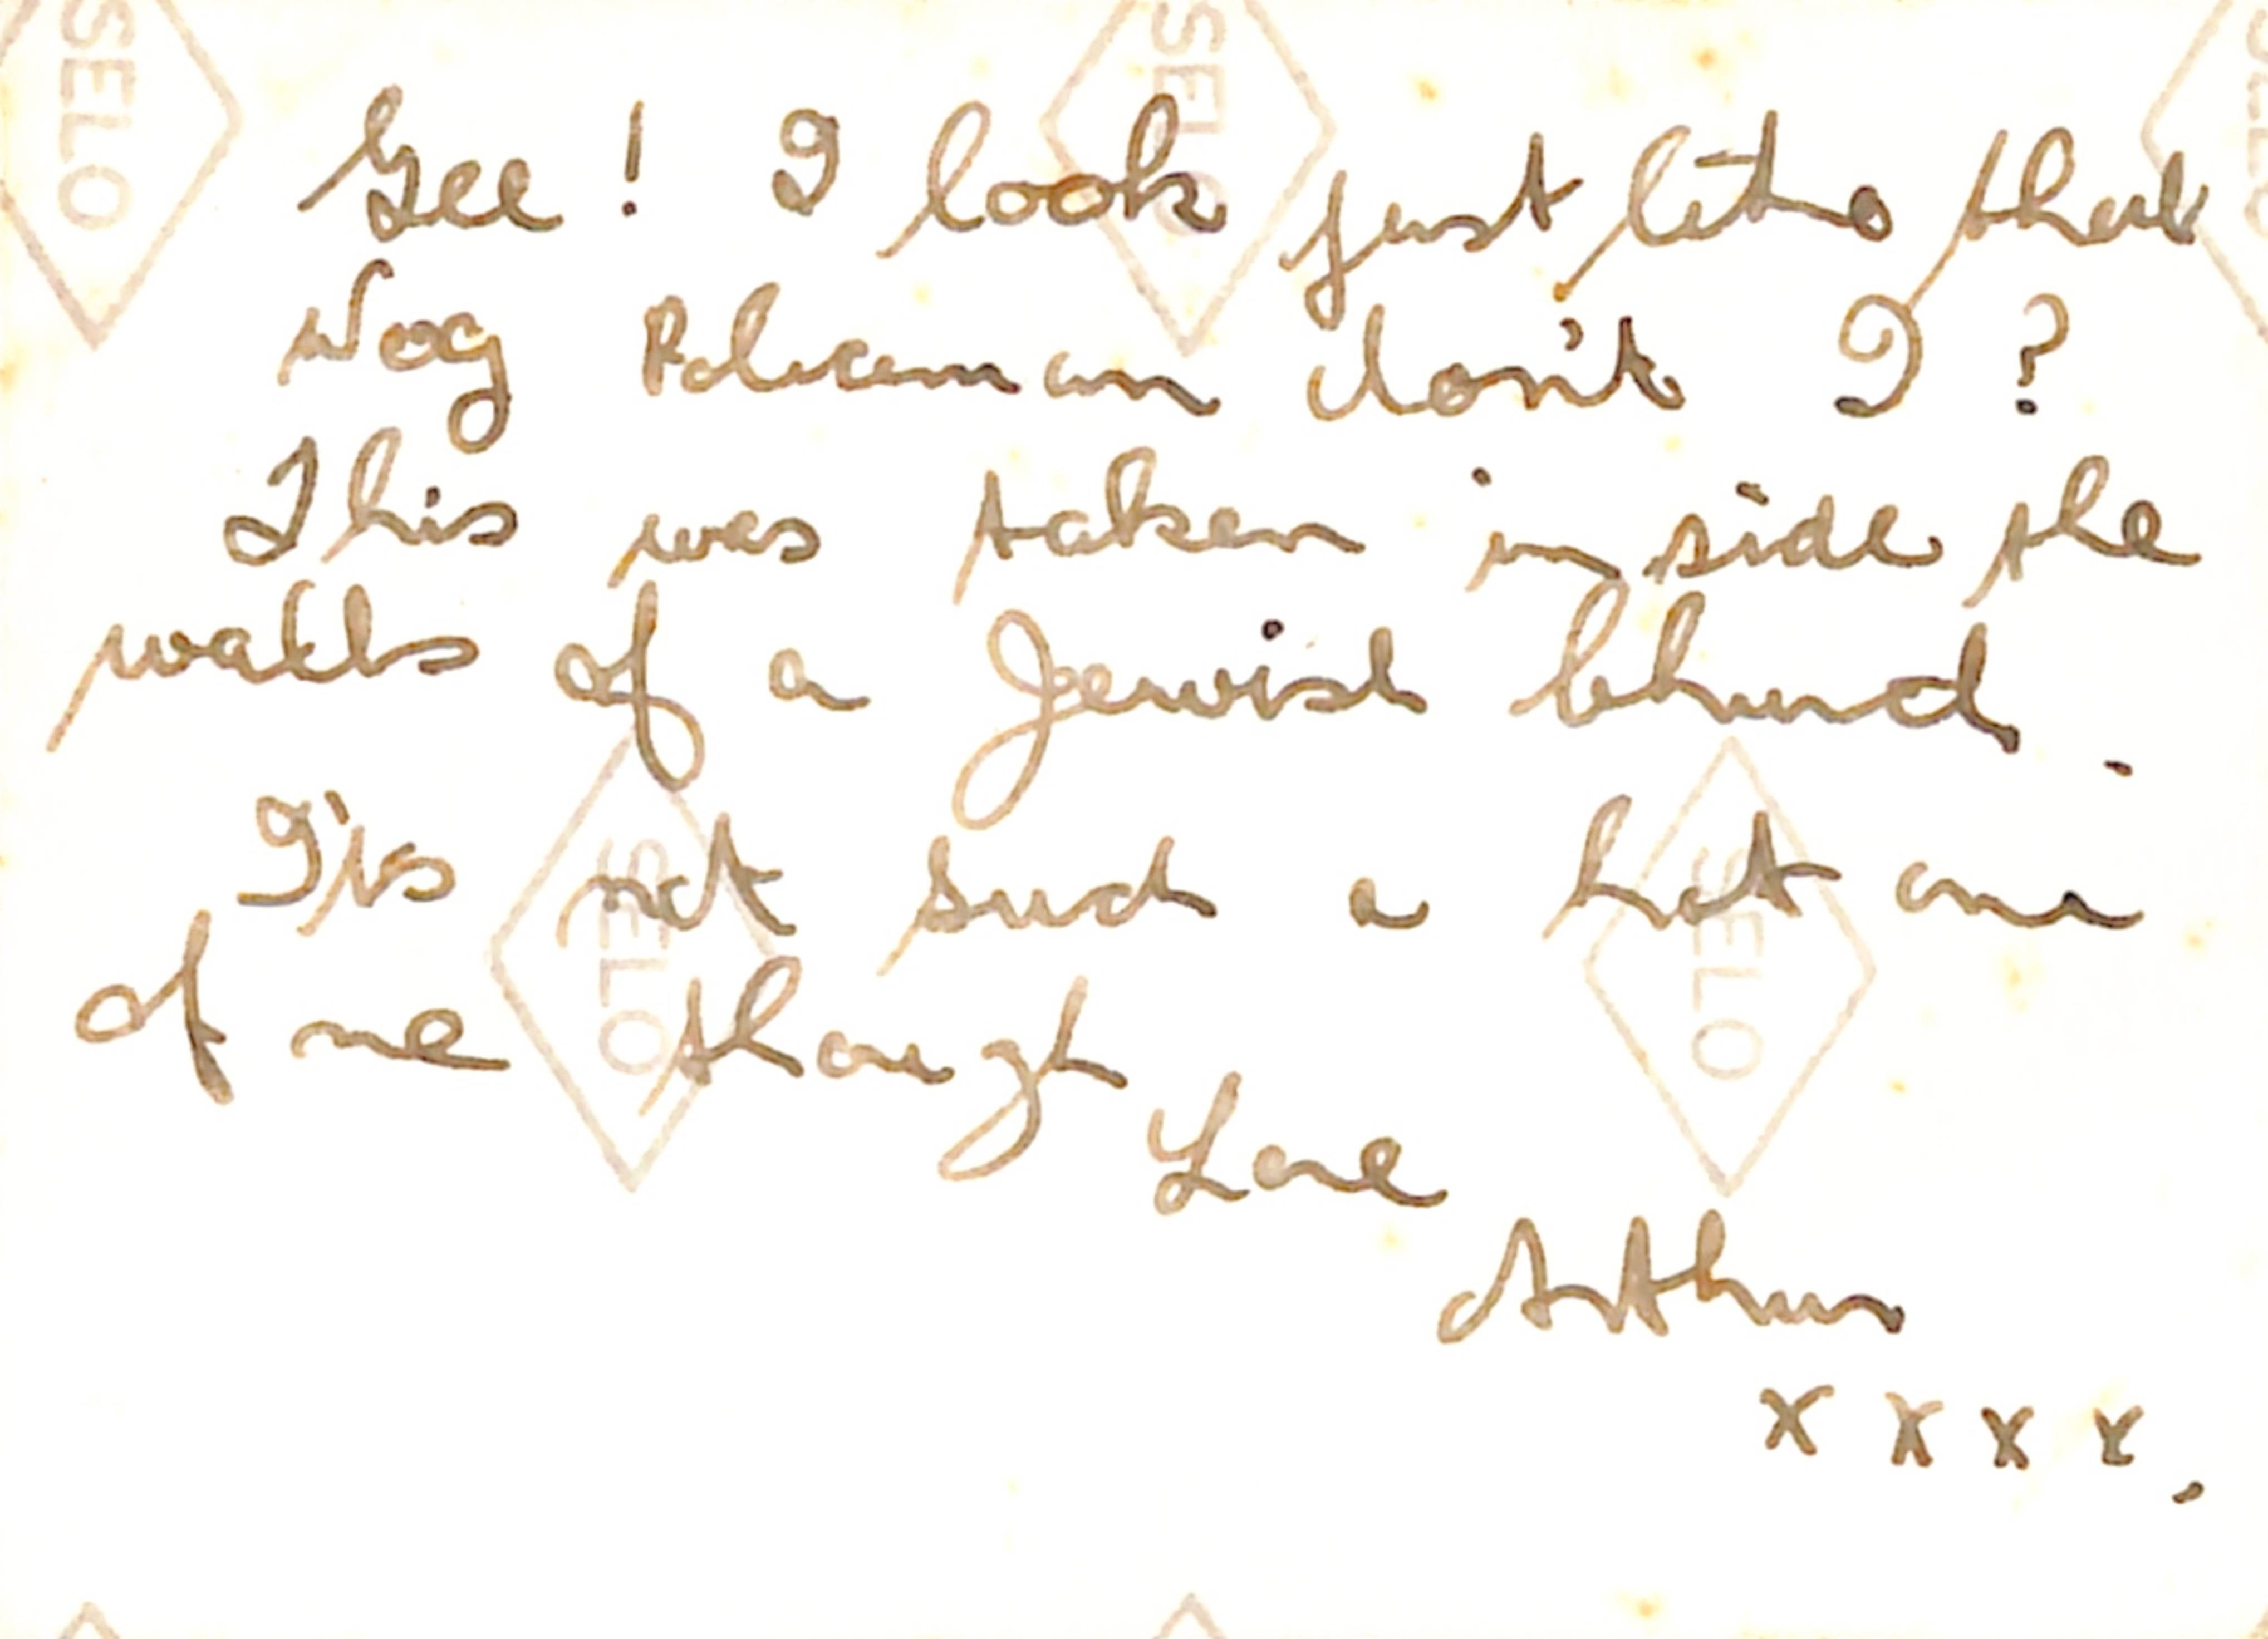 Gee! I look just like that
Wog Policeman don't I?
This was taken inside the
walls of a Jewish
It's not such a hot one
of me though
Love
Arthur
x x x x.
SELO
SELO
SELO
SELO